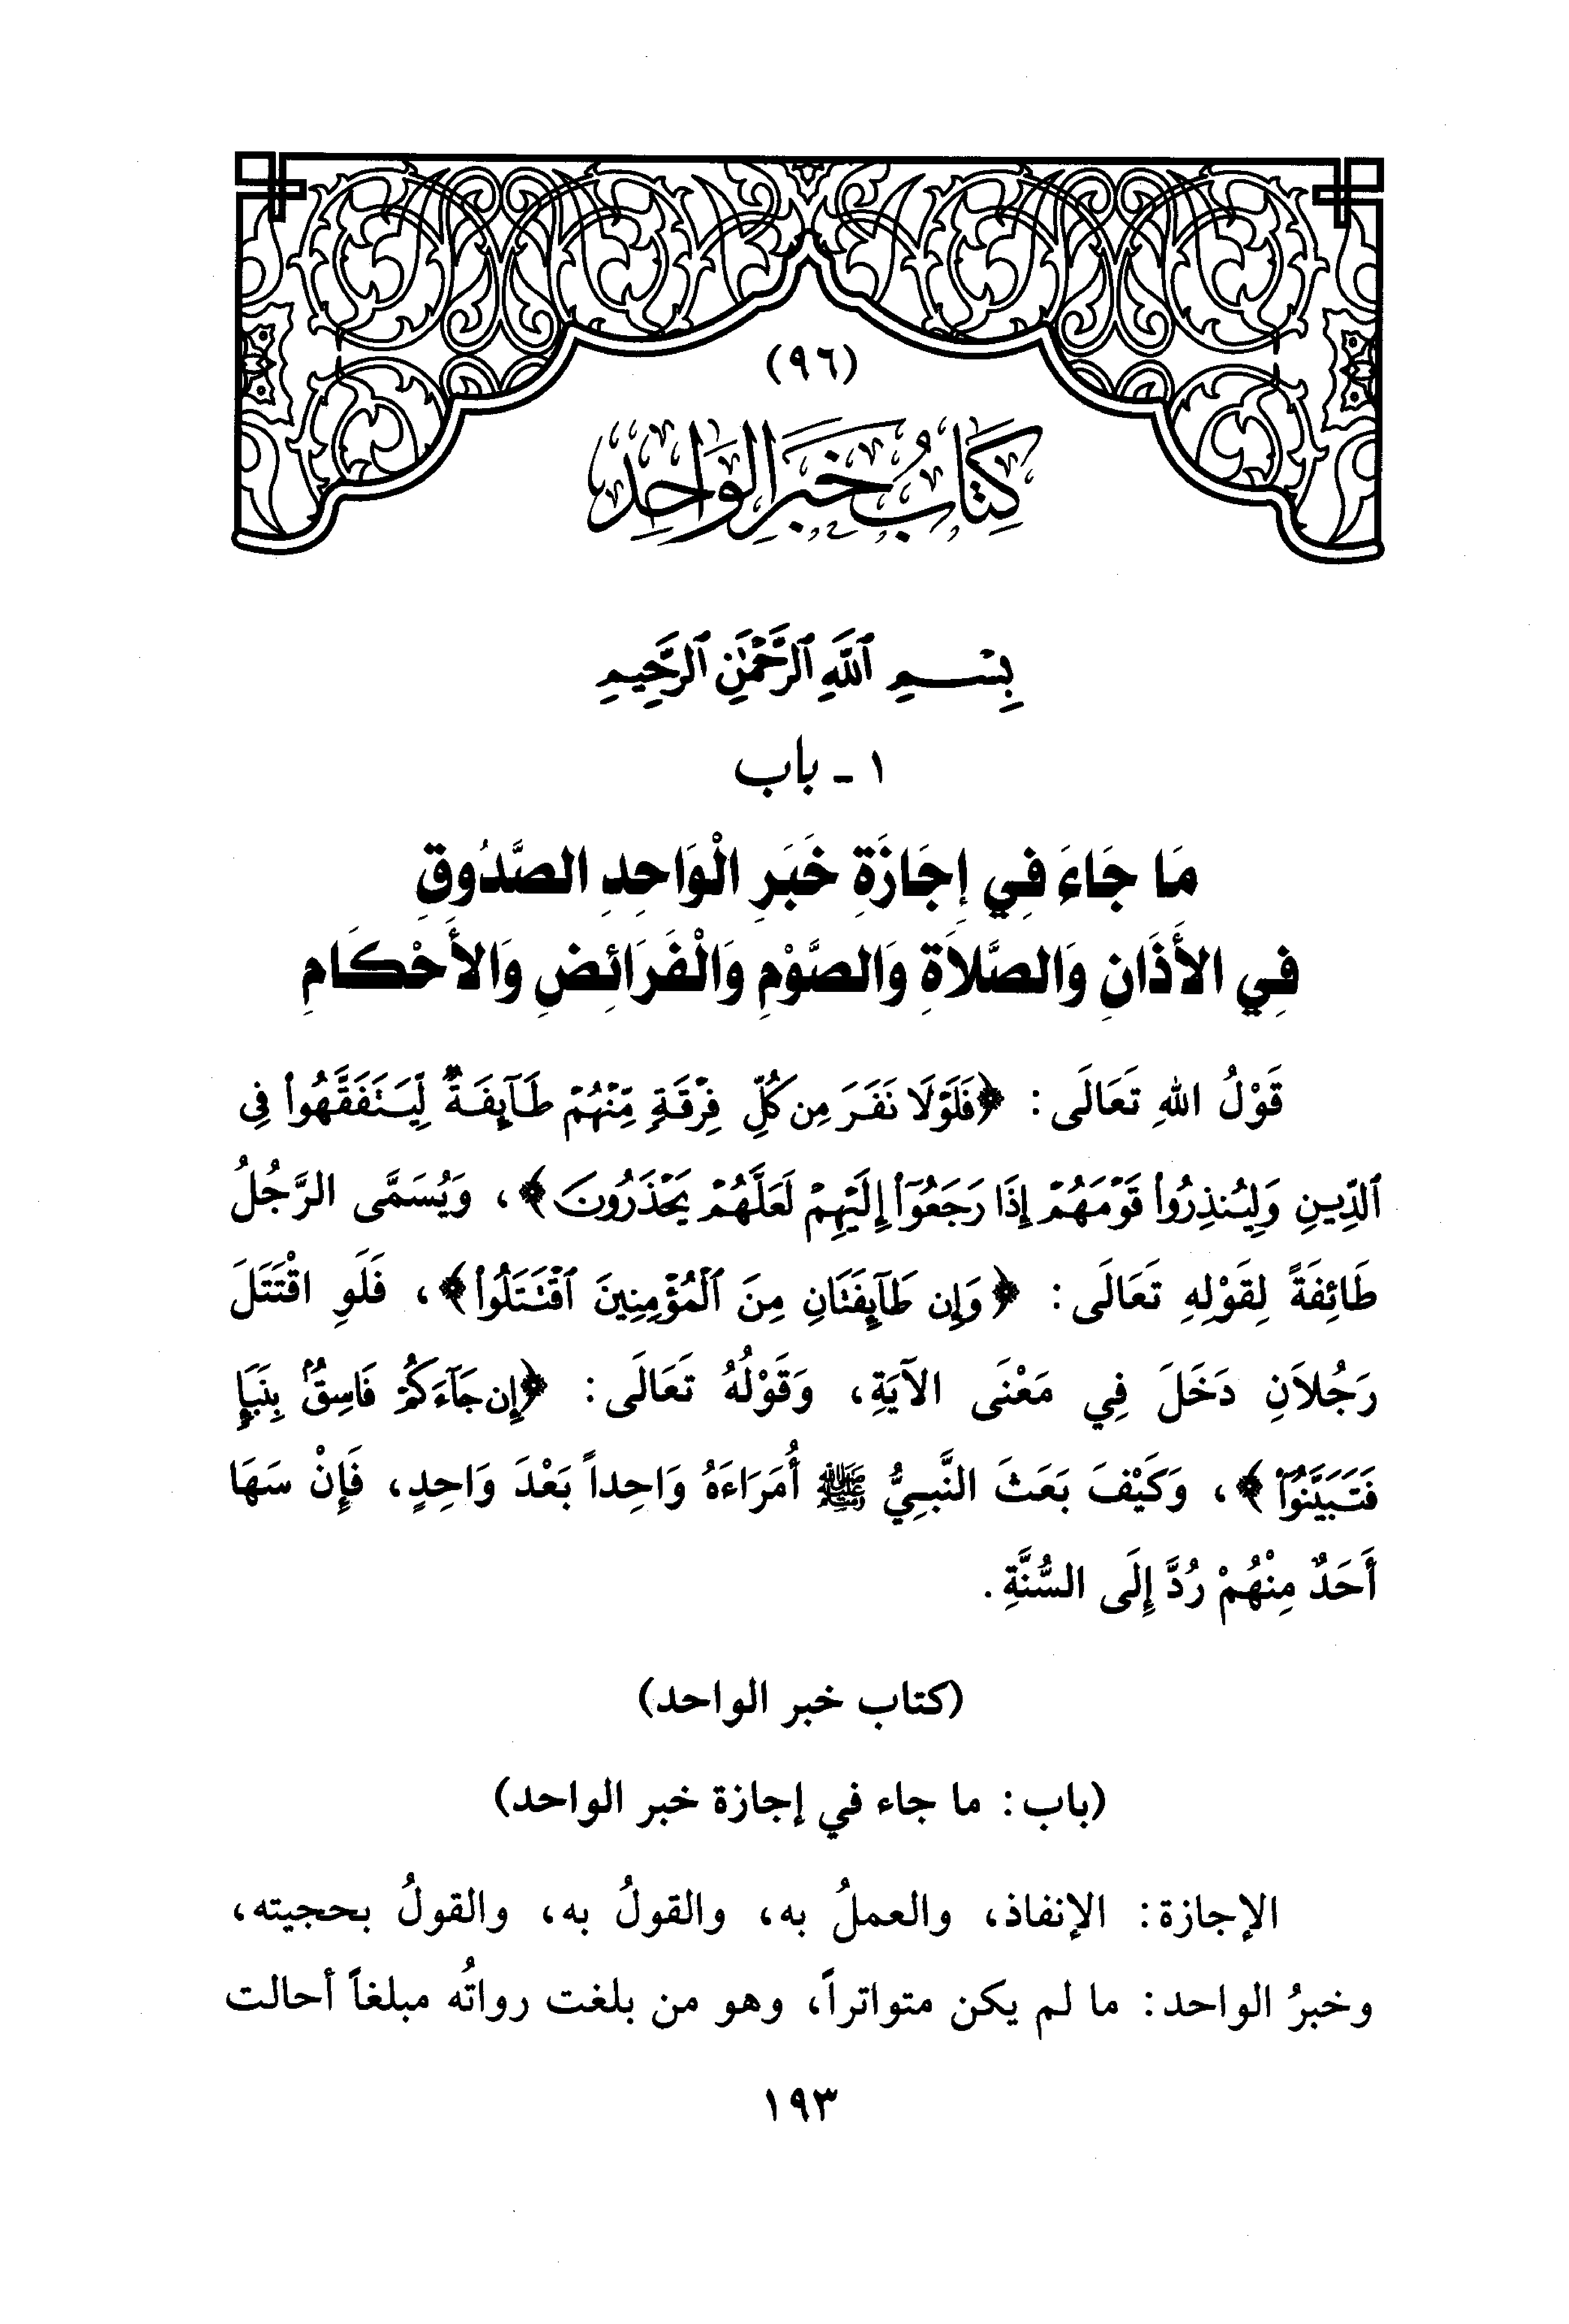 (٩٦)
كِتَابُ خَبَرِ الوَاحِدِ
بِسْمِ ٱللَّهِ ٱلرَّحْمَٰنِ ٱلرَّحِيمِ
١ ـ باب
مَا جَاءَ فِي إِجَازَةِ خَبَرِ الْوَاحِدِ الصَّدُوقِ
فِي الأَذَانِ وَالصَّلاَةِ وَالصَّوْمِ وَالْفَرَائِضِ وَالأَحْكَامِ
قَوْلُ اللهِ تَعَالَى: ﴿فَلَوْلَا نَفَرَ مِن كُلِّ فِرْقَةٍ مِّنْهُمْ طَآئِفَةٌ لِّيَتَفَقَّهُوا۟ فِى
ٱلدِّينِ وَلِيُنذِرُوا۟ قَوْمَهُمْ إِذَا رَجَعُوٓا۟ إِلَيْهِمْ لَعَلَّهُمْ يَحْذَرُونَ﴾، وَيُسَمَّى الرَّجُلُ
طَائِفَةً لِقَوْلِهِ تَعَالَى: ﴿وَإِن طَآئِفَتَانِ مِنَ ٱلْمُؤْمِنِينَ ٱقْتَتَلُوا۟﴾، فَلَوِ اقْتَتَلَ
رَجُلاَنِ دَخَلَ فِي مَعْنَى الآيَةِ، وَقَوْلُهُ تَعَالَى: ﴿إِن جَآءَكُمْ فَاسِقٌۢ بِنَبَإٍ
فَتَبَيَّنُوٓا۟﴾، وَكَيْفَ بَعَثَ النَّبِيُّ ﷺ أُمَرَاءَهُ وَاحِداً بَعْدَ وَاحِدٍ، فَإِنْ سَهَا
أَحَدٌ مِنْهُمْ رُدَّ إِلَى السُّنَّةِ.
(كتاب خبر الواحد)
(باب: ما جاء في إجازة خبر الواحد)
الإجازة: الإنفاذ، والعملُ به، والقولُ به، والقولُ بحجيته،
وخبرُ الواحد: ما لم يكن متواتراً، وهو من بلغت رواتُه مبلغاً أحالت
١٩٣